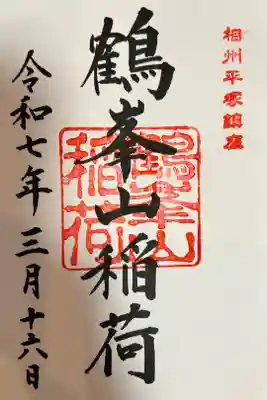 相州平塚鎮座
鶴峯山稲荷
鶴峯山
稲荷
令和七年三月十六日